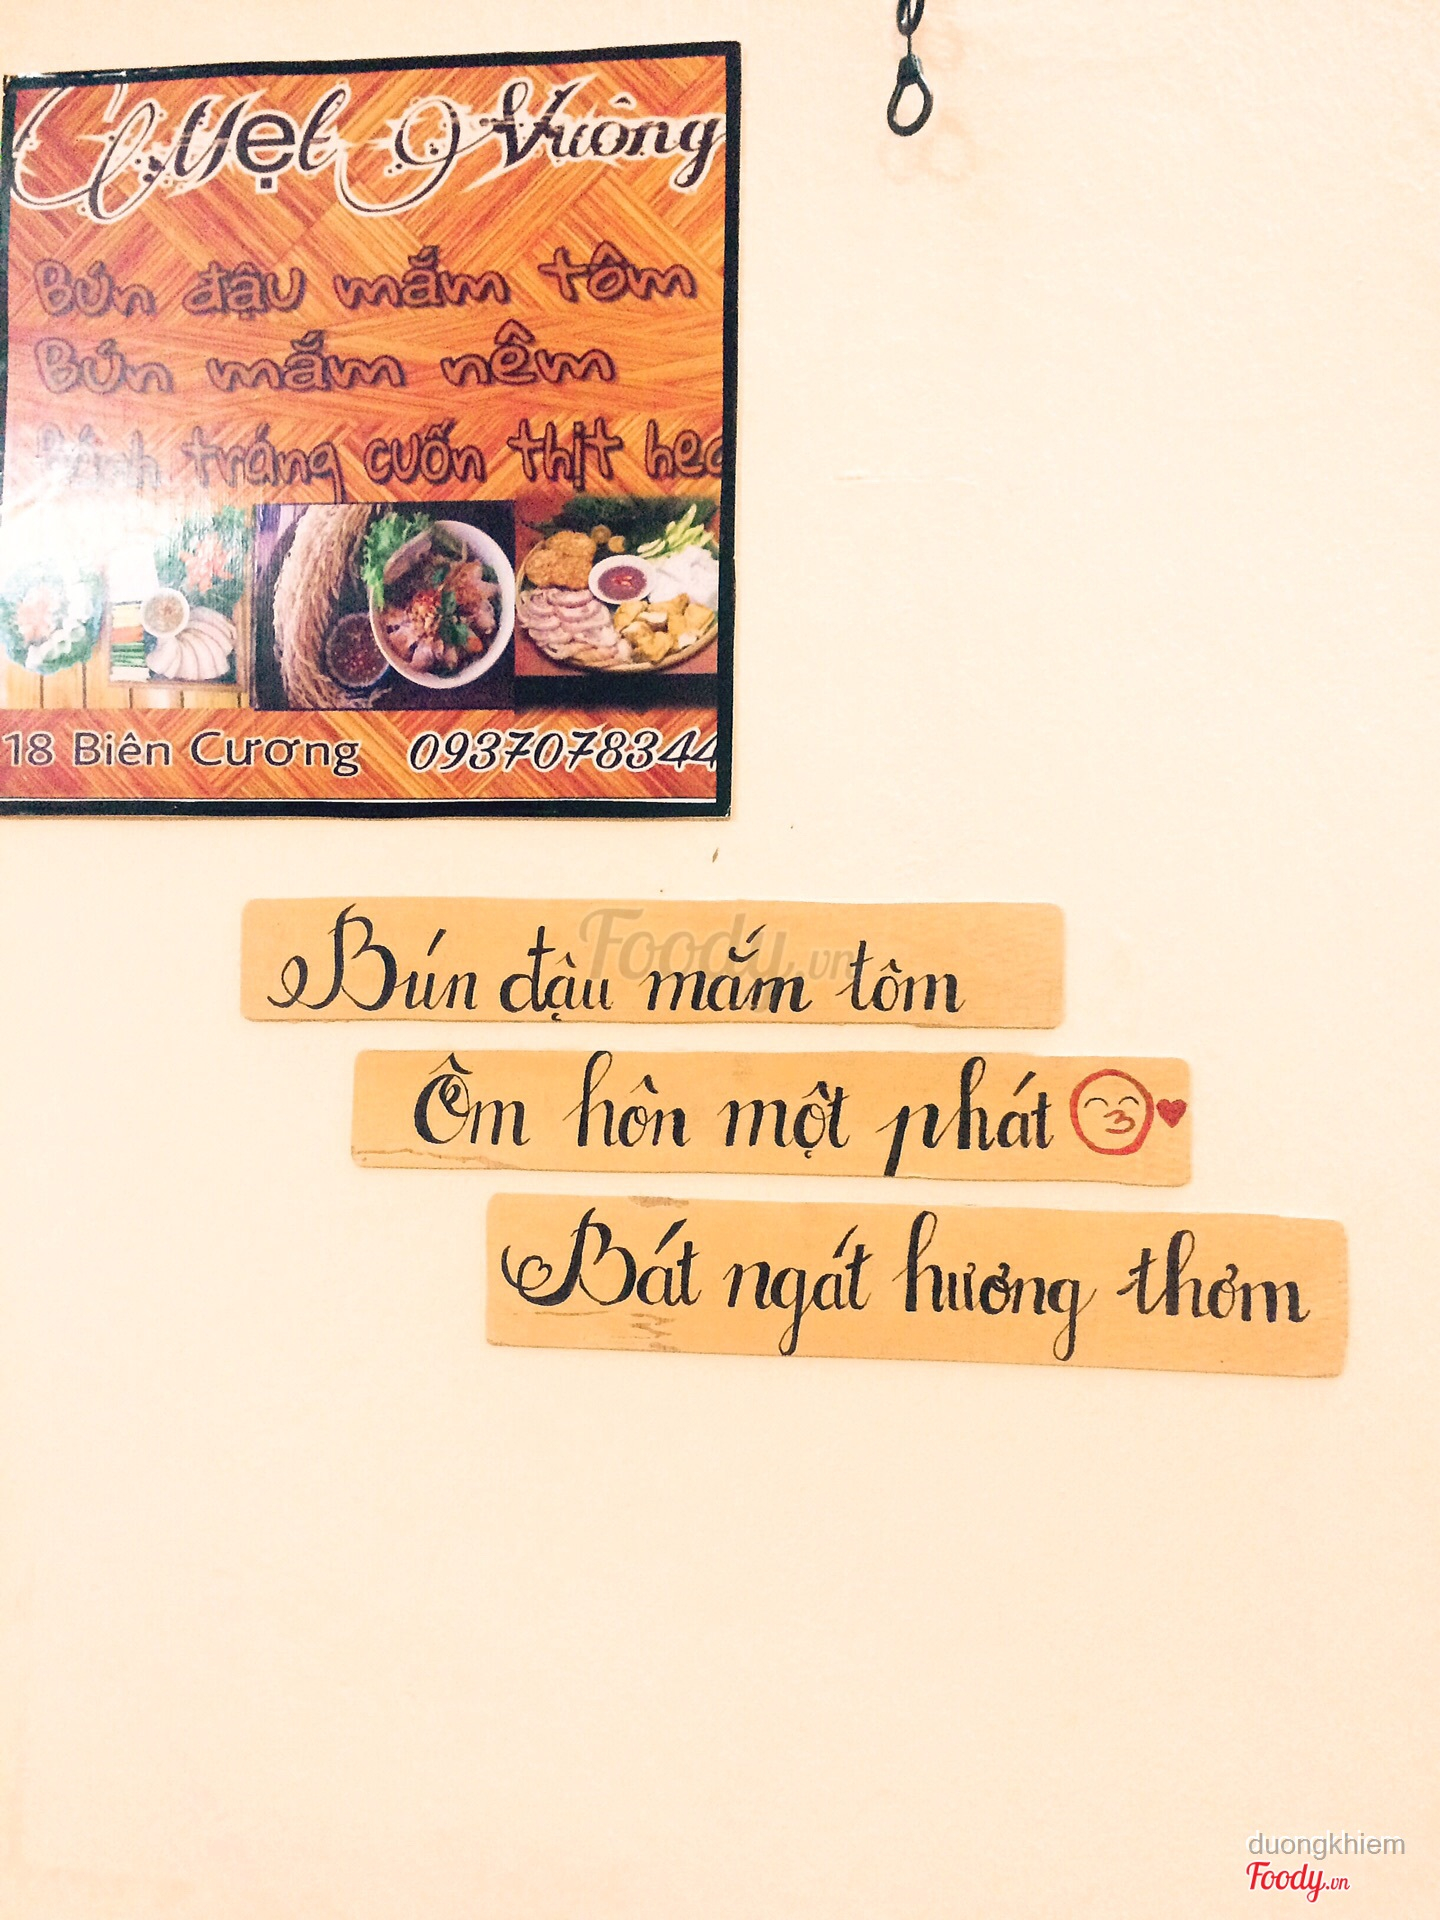 Mẹt Vuông
Bún đậu mắm tôm
Bún mắm nêm
Bánh tráng cuốn thịt heo
18 Biên Cương 0937078344
Bún đậu mắm tôm
Foody.vn
Ôm hôn một phát
Bát ngát hương thơm
duongkhiem
Foody.vn